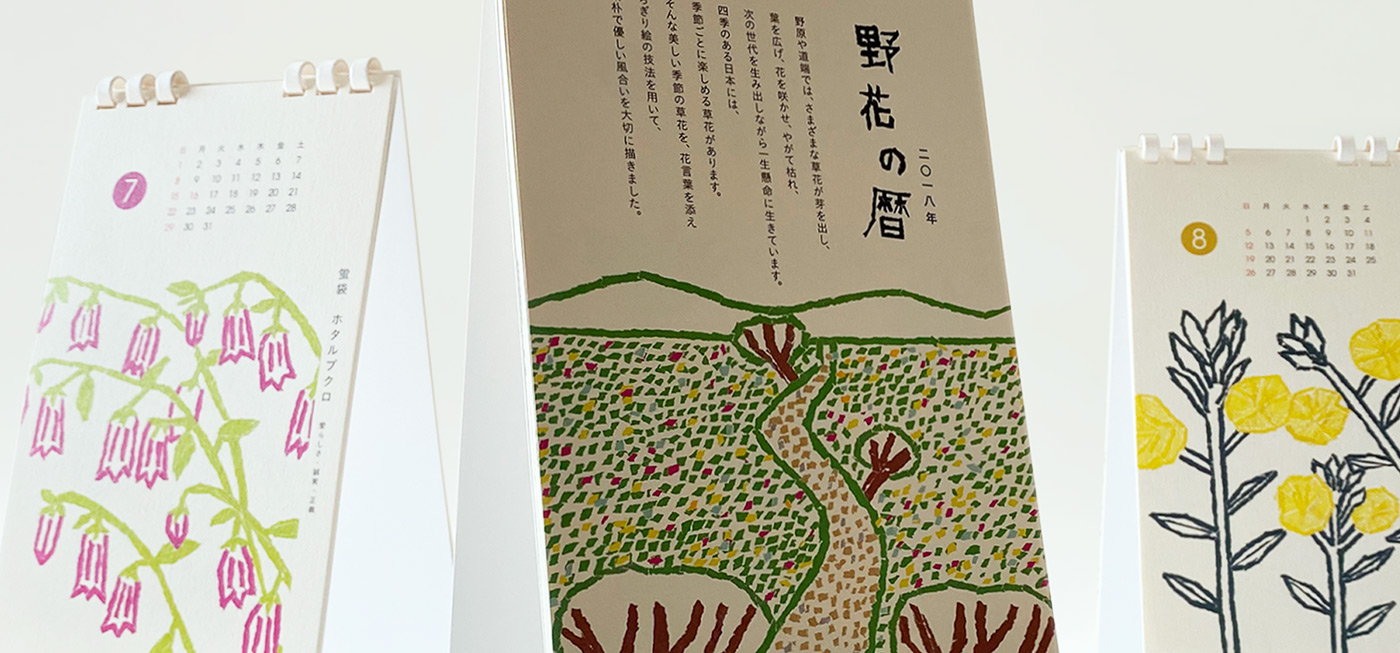 7
日 月 火 水 木 金 土
1 2 3 4 5 6 7
8 9 10 11 12 13 14
15 16 17 18 19 20 21
22 23 24 25 26 27 28
29 30 31
蛍袋 ホタルブクロ
愛らしさ、誠実、正義
野花の暦
二〇一八年
野原や道端では、さまざまな草花が芽を出し、
葉を広げ、花を咲かせ、やがて枯れ、
次の世代を生み出しながら一生懸命に生きています。
四季のある日本には、
季節ごとに楽しめる草花があります。
そんな美しい季節の草花を、花言葉を添え
ちぎり絵の技法を用いて、
朴で優しい風合いを大切に描きました。
8
日 月 火 水 木 金 土
1 2 3 4
5 6 7 8 9 10 11
12 13 14 15 16 17 18
19 20 21 22 23 24 25
26 27 28 29 30 31